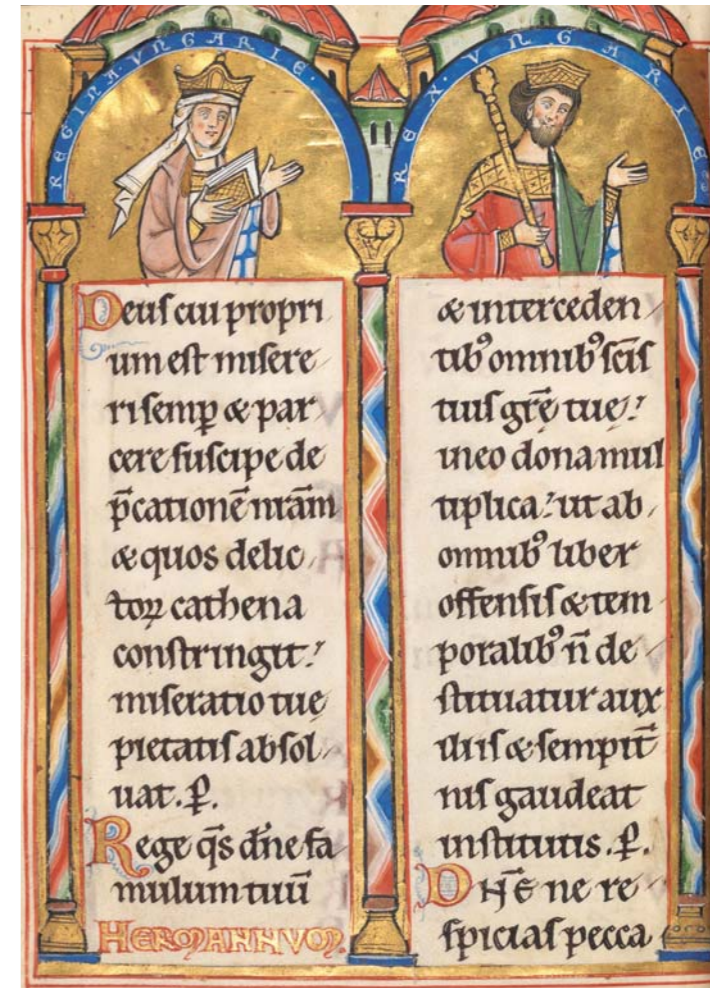 REGINA·VNGARIE·
Deus cui propri
um est misere
ri semp̱ & par
cere suscipe de
p̄cationē nrām
& quos delic
toꝝ cathena
constringit
miseratio tuę
pietatis absol
uat. P̱.
Rege q̄s dn̄e fa
mulum tuū
HERMANNVM.
REX·VNGARIE
& interceden
tib᾿ omnib᾿ scīs
tuis grē tuę
in eo dona mul
tiplica ut ab
omnib᾿ liber
offensis & tem
poralib᾿ n̄ de
stituatur aux
iliis & sempit̄
nis gaudeat
institutis. P̱.
DN̄E ne re
spicias pecca